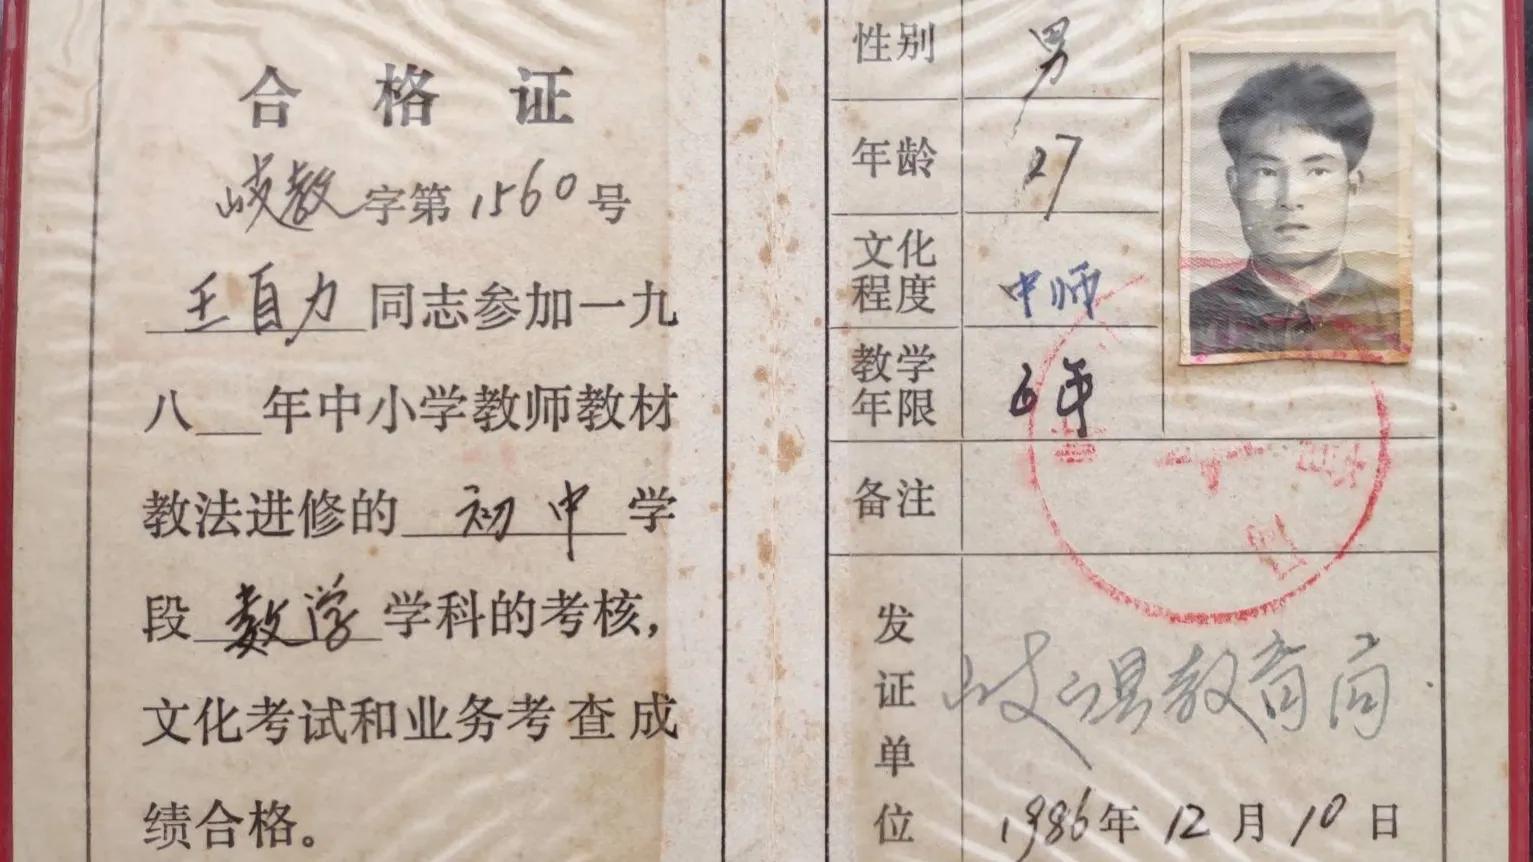 合格证
岐教字第1560号
王自力同志参加一九
八__年中小学教师教材
教法进修的初中学
段数学学科的考核，
文化考试和业务考查成
绩合格。
性别 男
年龄 27
文化程度 中师
教学年限 6年
备注
发证单位 岐山县教育局
1986年12月10日